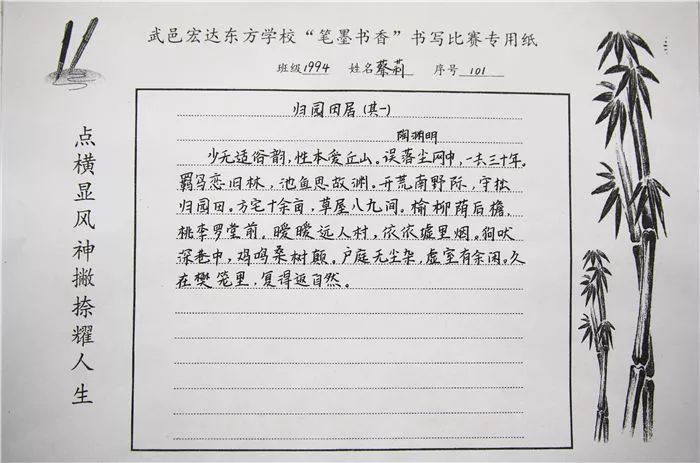 武邑宏达东方学校“笔墨书香”书写比赛专用纸
班级1994 姓名蔡莉 序号101
点横显风神撇捺耀人生
归园田居(其一)
陶渊明
少无适俗韵,性本爱丘山。误落尘网中,一去三十年。
羁鸟恋旧林,池鱼思故渊。开荒南野际,守拙
归园田。方宅十余亩,草屋八九间。榆柳荫后檐,
桃李罗堂前。暧暧远人村,依依墟里烟。狗吠
深巷中,鸡鸣桑树颠。户庭无尘杂,虚室有余闲。久
在樊笼里,复得返自然。